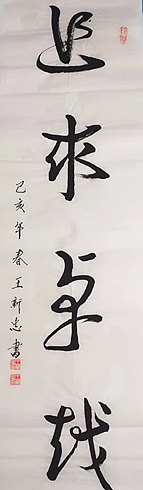 追求卓越
己亥年春王新忠書